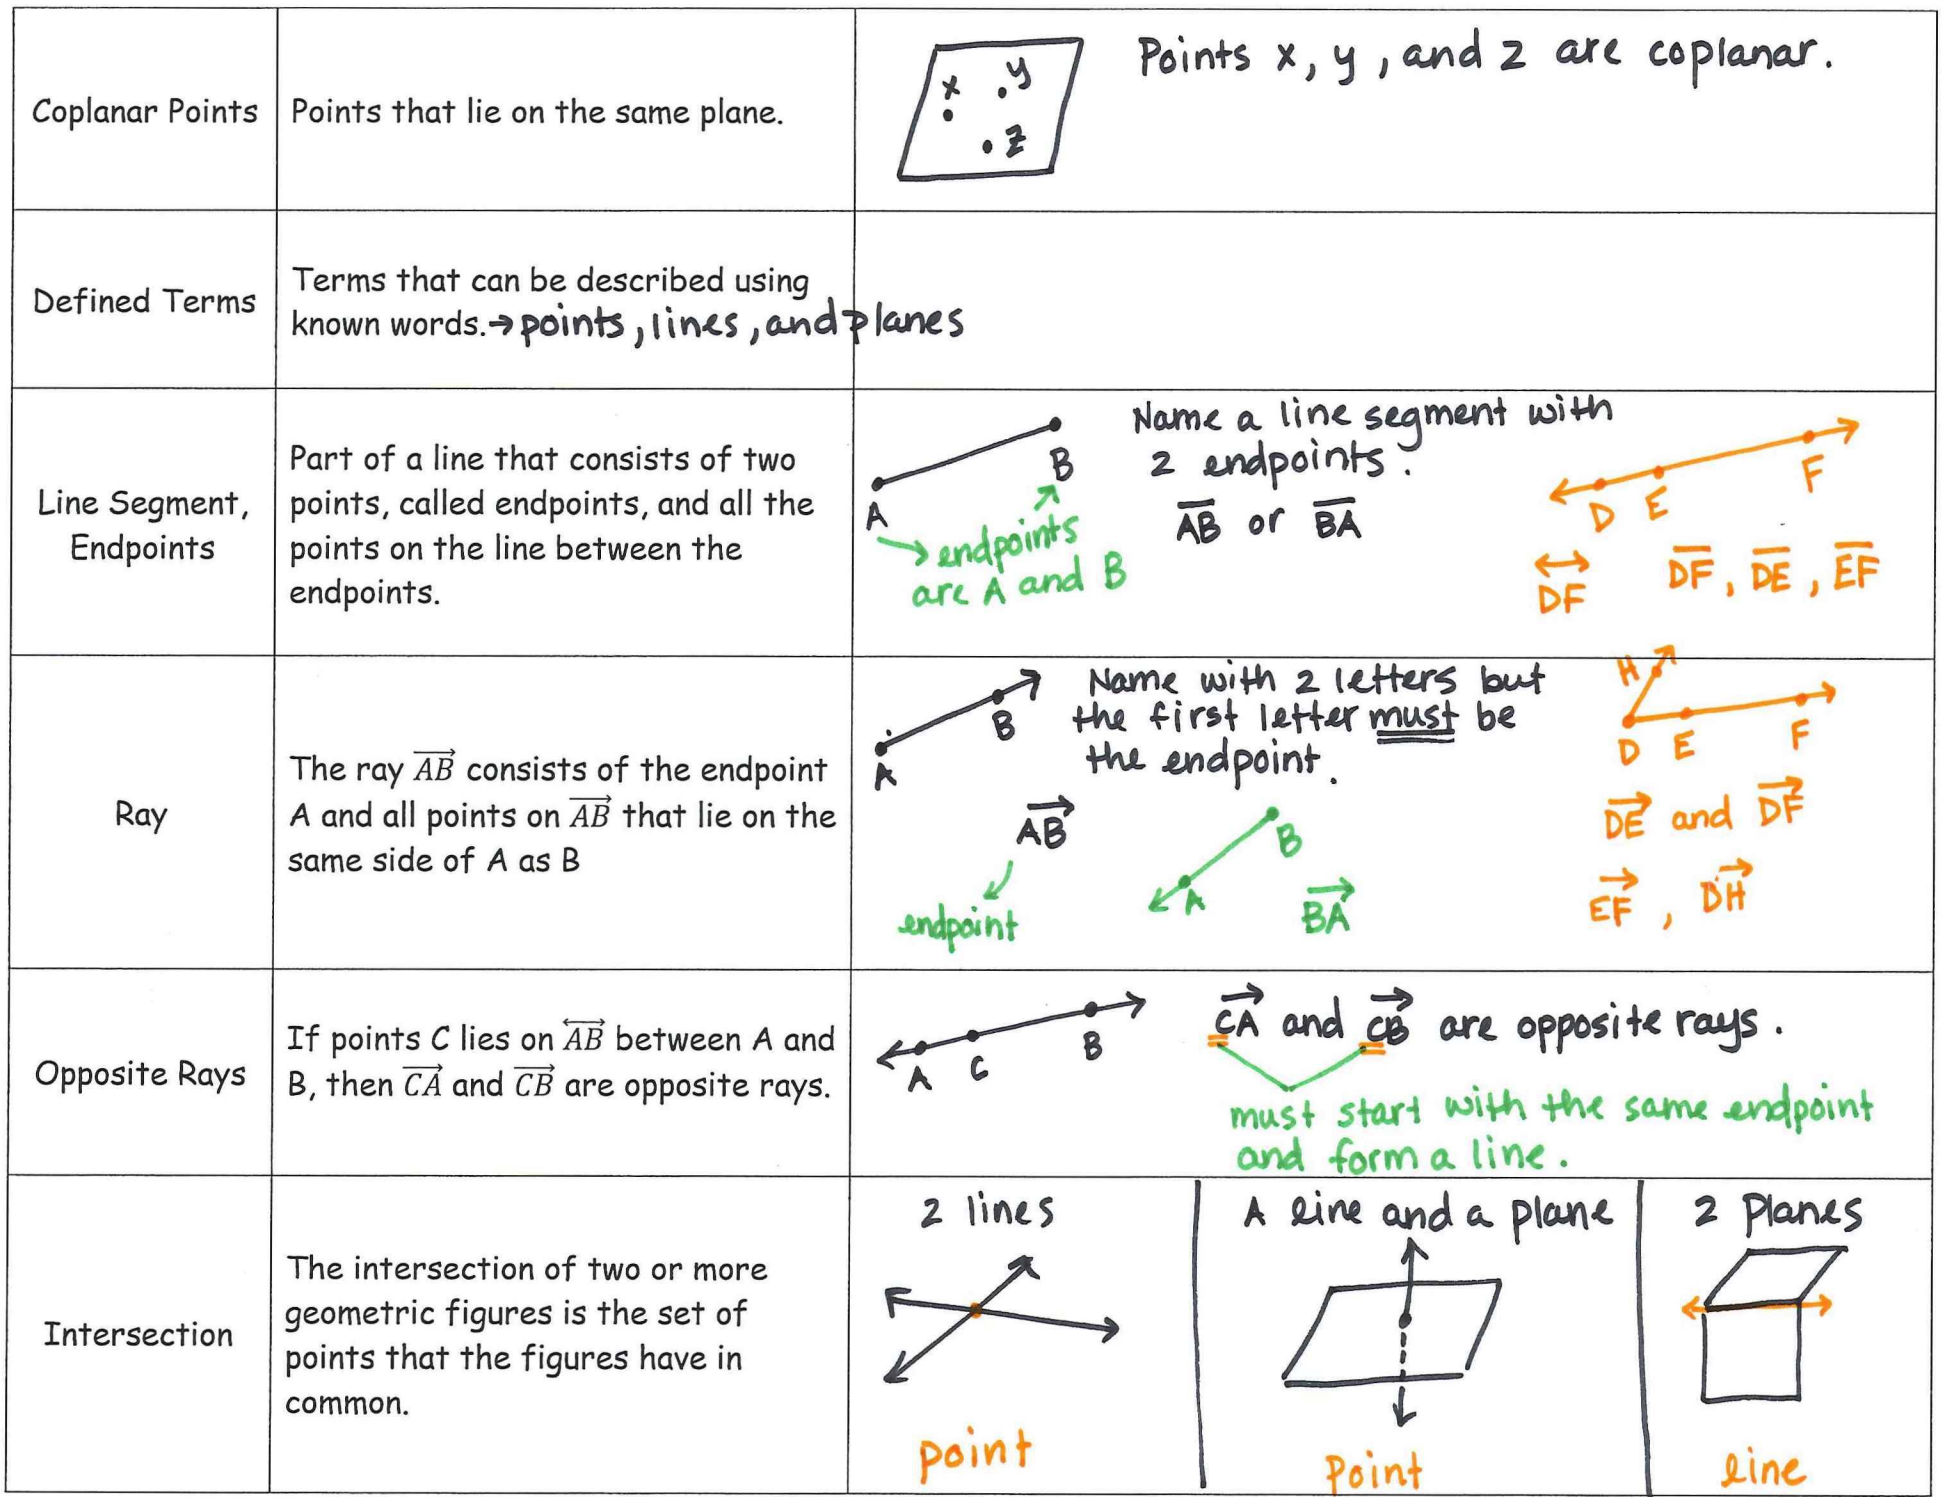 Coplanar Points
Points that lie on the same plane.
x
y
z
Points x, y, and z are coplanar.
Defined Terms
Terms that can be described using
known words.→points, lines, and planes
Line Segment,
Endpoints
Part of a line that consists of two
points, called endpoints, and all the
points on the line between the
endpoints.
A
B
endpoints
are A and B
Name a line segment with
2 endpoints.
A̅B̅ or B̅A̅
D
E
F
D⃡F⃡
D̅F̅, D̅E̅, E̅F̅
Ray
The ray A⃗B⃗ consists of the endpoint
A and all points on A⃗B⃗ that lie on the
same side of A as B
A
B
Name with 2 letters but
the first letter must be
the endpoint.
A⃗B⃗
endpoint
A
B
B⃗A⃗
H
D
E
F
D⃗E⃗ and D⃗F⃗
E⃗F⃗, D⃗H⃗
Opposite Rays
If points C lies on A⃡B⃡ between A and
B, then C⃗A⃗ and C⃗B⃗ are opposite rays.
A
C
B
C⃗A⃗ and C⃗B⃗ are opposite rays.
must start with the same endpoint
and form a line.
Intersection
The intersection of two or more
geometric figures is the set of
points that the figures have in
common.
2 lines
point
A line and a plane
Point
2 Planes
line